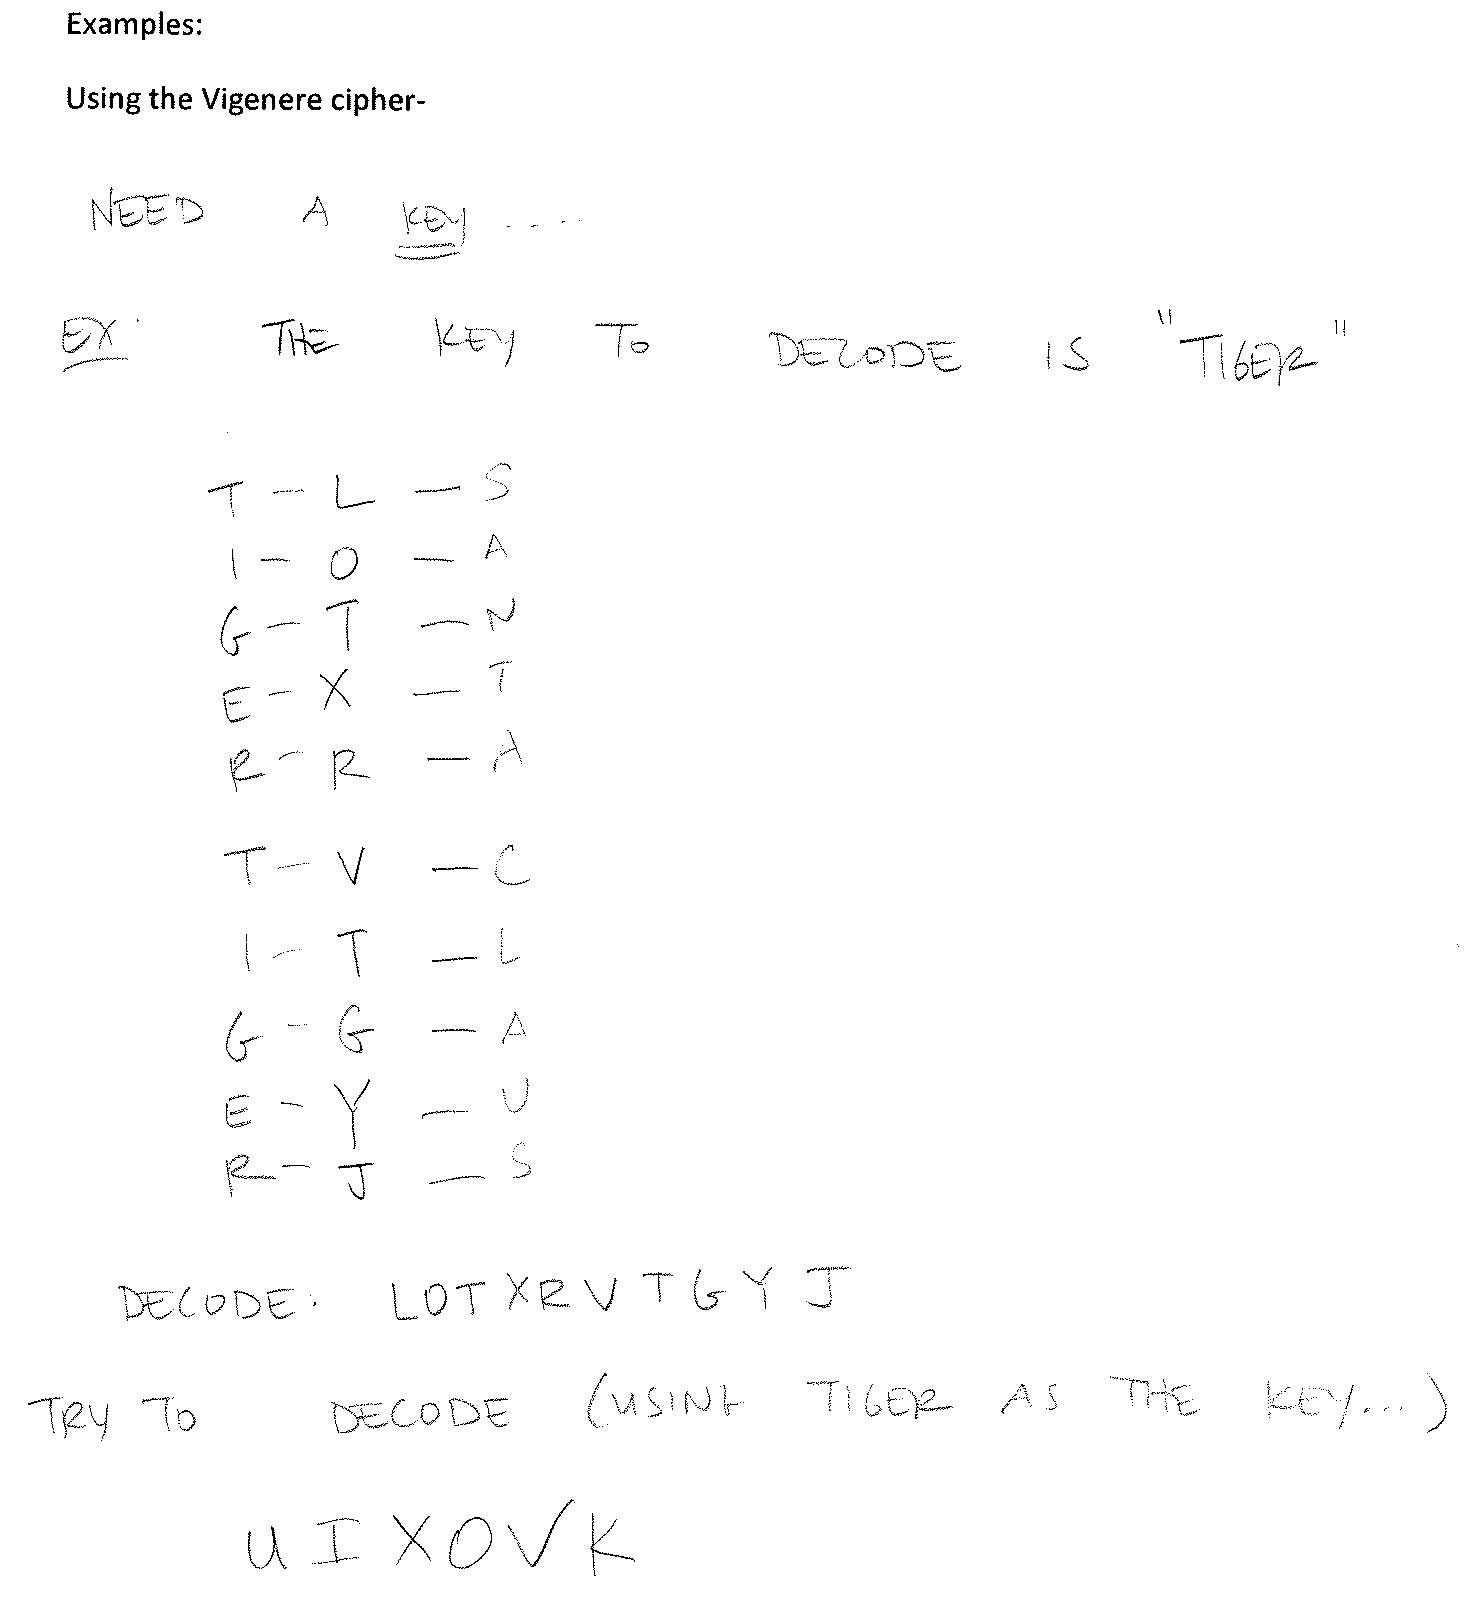 Examples:
Using the Vigenere cipher-
NEED A KEY ....
EX: THE KEY TO DECODE IS "TIGER"
T - L - S
I - O - A
G - T - N
E - X - T
R - R - A
T - V - C
I - T - L
G - G - A
E - Y - U
R - J - S
DECODE: LOTXRVTGYJ
TRY TO DECODE (USING TIGER AS THE KEY...)
UIXOVK